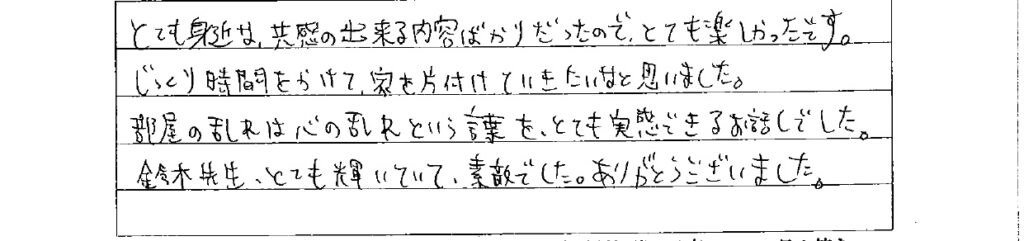 とても身近な、共感の出来る内容ばかりだったので、とても楽しかったです。
じっくり時間をかけて、家を片付けていきたいなと思いました。
部屋の乱れは心の乱れという言葉を、とても実感できるお話しでした。
鈴木先生、とても輝いていて、素敵でした。ありがとうございました。